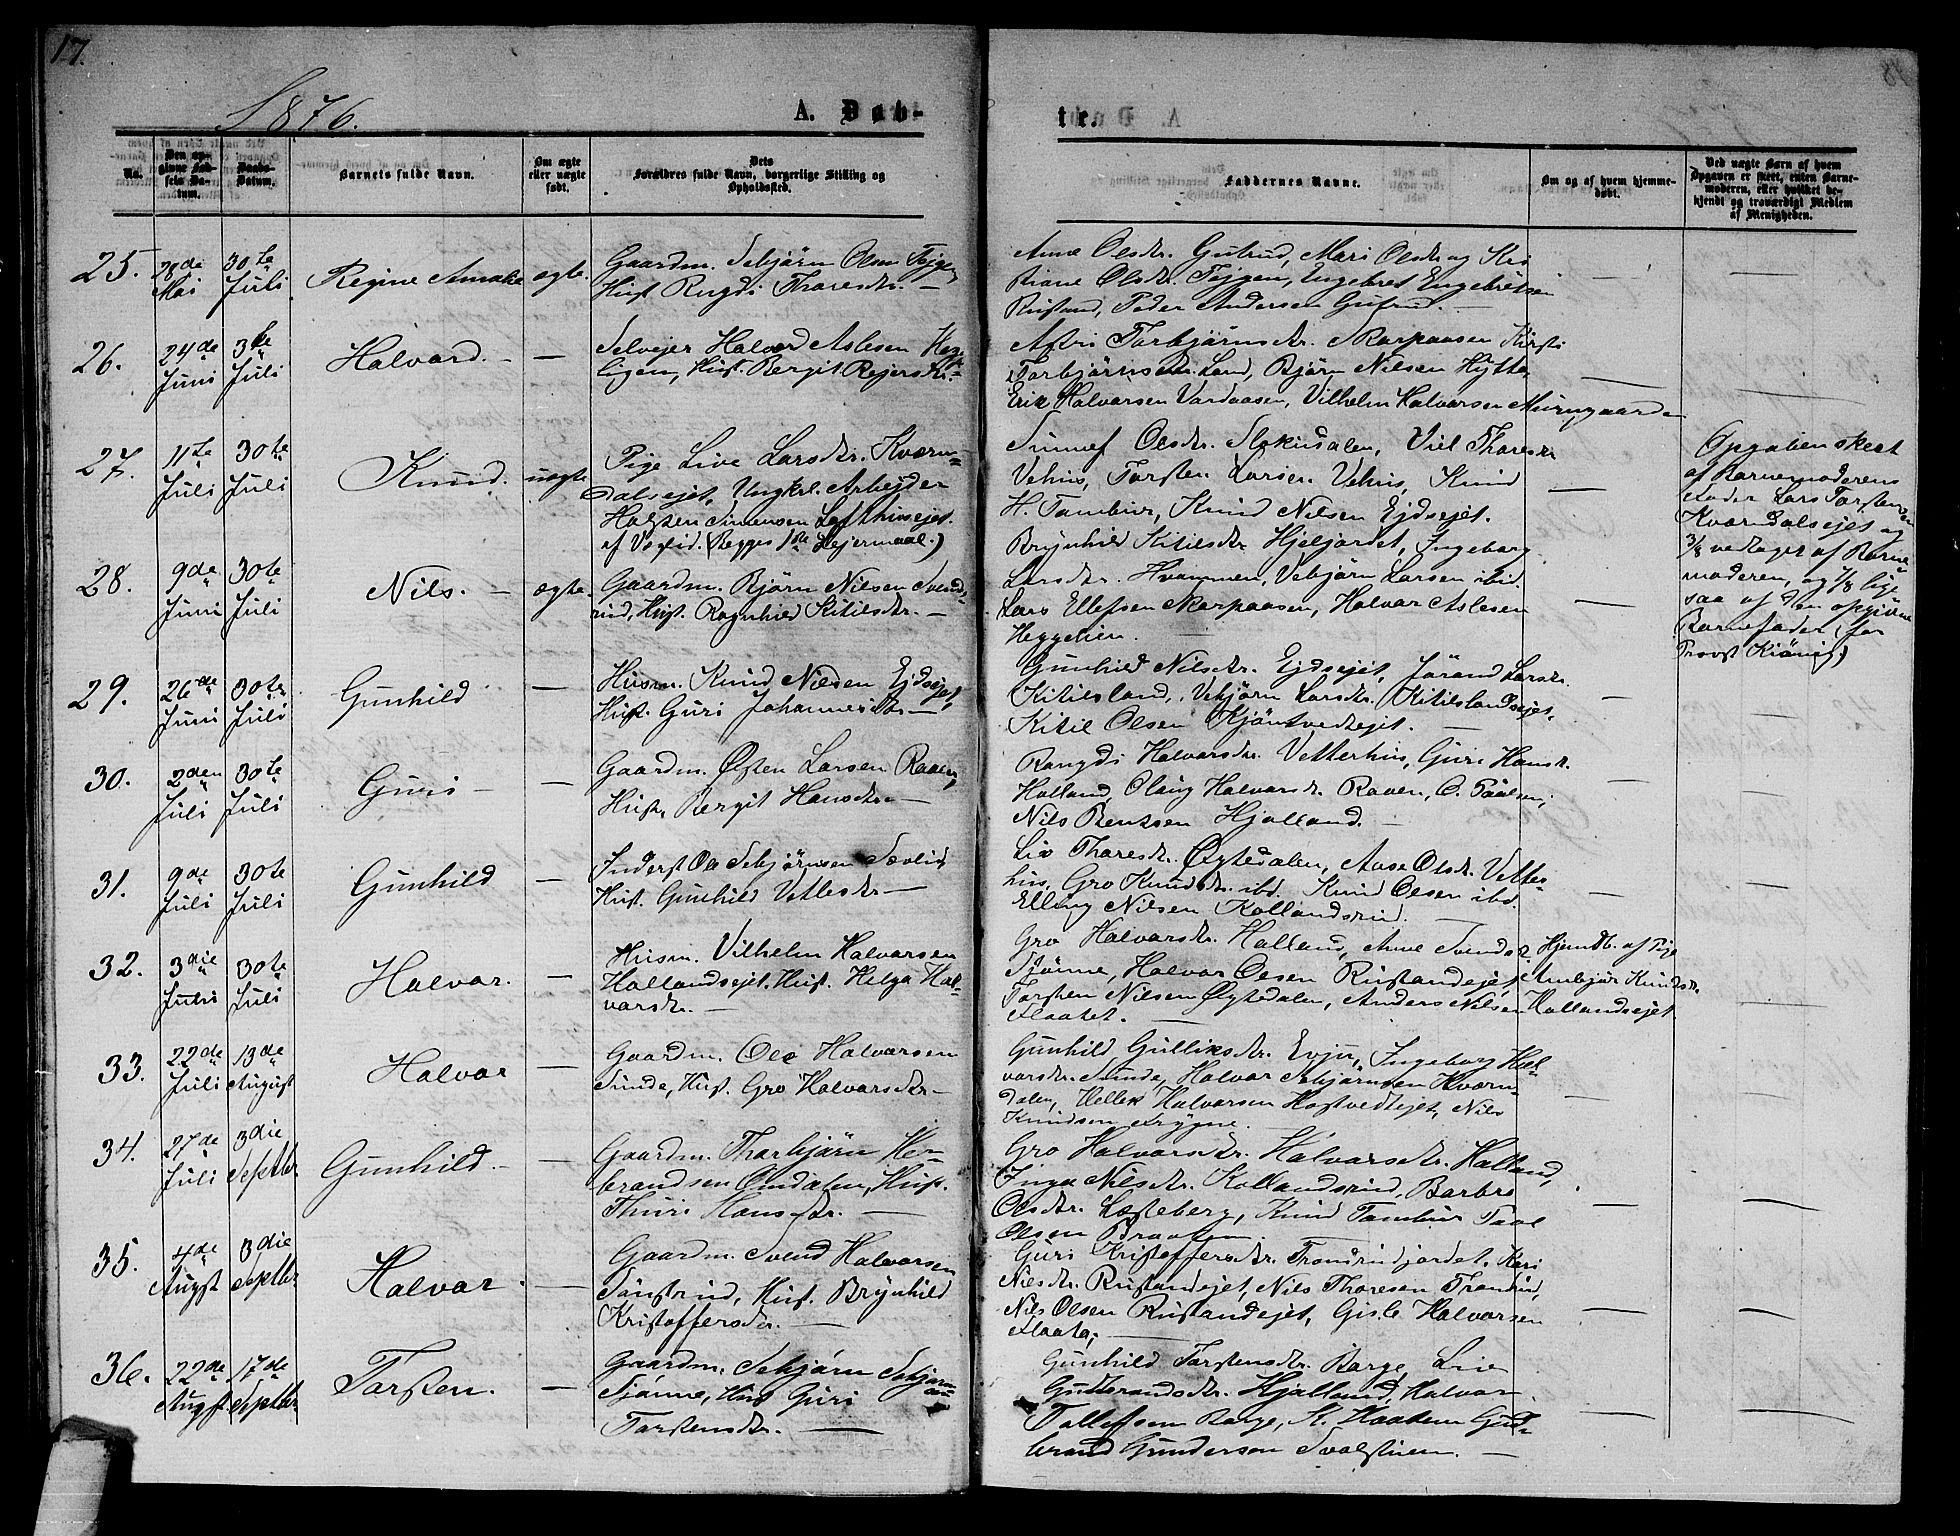 17.
1876.
A. Døb-
te.
No.
Den opgivne Fødsels Datum.
Daabs-Datum.
Barnets fulde Navn.
Om ægte eller uægte født.
Dets Forældres fulde Navn, borgerlige Stilling og Opholdssted.
Faddernes Navne.
Om og af hvem hjemmedøbt.
Ved uægte Børn af hvem Opgaven er skeet, enten Barnemoderen, eller hvilket bekjendt og troværdigt Medlem af Menigheden.
25.
28de Mai
30te Juli
Regine Amalie
ægte.
Gaardm. Sebjörn Olsn Tejgen
Hust. Rugdi Tharesdtr. —
Anne Olsdtr. Gutrud, Mari Olsdtr og Kri
stiane Olsdtr. Tejgen, Engebret Engebretsen
Rustand, Peder Andersen Gutrud. —
26.
24de Juni
3te Juli
Halvard. —
—
Selvejer Halvor Aslesen Heg
ligen, Hust. Bergit Rejersdtr. —
Torbjörnsdtr. Skarpaasen Kirsti
Torbjörnsen Land, Björn Nilsen Hytte
Erik Halvorsen Vardaasen, Vilhelm Halvorsen Muungaard
27.
11te Juli
30te Juli
Knud.
uægte
Pige Live Larsdtr. Kværn-
dalsejet, Ungkrl. Arbejder
Halsten Simensen Lofthusejet.
af Vegli. (Begges 1ste Lejermaal.)
Sunnef Olsdtr. Slokusdalen, Viel Tharesdtr
Vehus, Torsten Larsen Vehus, Knud
H. Tambur, Knud Nilsen Ejdsejet.
Opgaven skeet
af Barnemoderens
Fader Lars Torsten
Kværndalsejet og
vedtaget af Barne
moderen, og lige
saa af den opgivne
Barnefader (for
Provst Kiönig.)
28.
9de Juni
30te Juli
Nils. —
ægte.
Gaardm. Björn Nilsen Svends-
rud, Hust. Ragnhild Kitilsdtr. —
Brynhild Kitilsdtr Hjeljordet, Ingeborg
Larsdtr. Hvammen, Vebjörn Larsen ibid
Lars Ellefsen Skarpaasen, Halvor Aslesen
Heggelien. —
29.
26de Juni
30te Juli
Gunhild
—
Husm. Knud Nilsen Ejdsejet,
Hust. Guri Johannesdtr. —
Gunhild Nilsdtr. Ejdsejet, Jörand Larsdtr.
Kitilsland, Vebjörn Larsdtr. Kitilslandsejet,
Kitil Olsen Kjöntvedtejet. —
30.
2den Juli
30te Juli
Guri —
—
Gaardm. Østen Larsen Raaen,
Hust. Bergit Hansdtr. —
Rangdi Halvorsdtr. Vetterhus, Guri Hansdtr.
Holland, Olaug Halvorsdtr. Raaen, O. Paalsen,
Nils Bentsen Hjalland. —
31.
9de Juli
30te Juli
Gunhild
—
Inderst Ole Sebjörnsen Sevlie,
Hust. Gunhild Vetlesdtr. —
Liv Tharesdtr. Øygtedalen, Aase Olsdtr. Vette-
hus, Gro Knudsdtr. ibd. Knud Olsen ibd.
Elling Nilsen Kollandsrud.
32.
3die Juli
30te Juli
Halvor.
—
Husm. Vilhelm Halvorsen
Hallandsejet. Hust. Helga Hal-
varsdtr. —
Gro Halvorsdtr. Halland, Anne Svendsdtr
Tjönne, Halvor Olsen Rustandejet
Torsten Nilsen Øgtedalen, Anders Nilsen
Flaatet. —
Hjemdb. af Pige
Anbjör Knudsdtr.
Hollandsejet.
33.
22de Juli
13de August
Halvor
—
Gaardm. Ole Halvorsen
Sunde, Hust. Gro Halvorsdtr. —
Gunhild Gulliksdtr. Evju, Ingeborg Hal-
vorsdtr. Sunde, Halvor Sebjörnsen Kværn-
dalen, Hellek Halvorsen Hostvedtejet, Nils
Knudsen Frygne.
34.
27de Juli
3die Septbr.
Gunhild. —
—
Gaardm. Thorbjörn Her-
brandsen Omdalen, Hust.
Thuri Hansdtr. —
Gro Halvorsdtr. Halvorsdtr. Halland,
Inga Nilsdtr. Kollandsrud, Barbro
Olsdtr. Læsteberg, Knud Tambur Paal
Olsen Braaten. —
35.
4de Augst
3die Septbr
Halvar.
—
Gaardm. Svend Halvorsen
Tönsrud, Hust. Brynhild
Kristoffersdtr. —
Guri Kristoffersdtr. Trondrudjordet. Kari
Nilsdtr. Rustandejet, Nils Tharesen Trondrud,
Nils Olsen Rustandejet, Gisle Halvorsen
Flaata; —
36.
22de Augst.
17de Septbr
Torsten.
—
Gaardm. Sebjörn Sebjörn
Tjönne, Hust Guri
Torstensdtr. —
Gunhild Torstensdtr. Barge, Live
Gulbrandsdtr. Hjalland, Halvor
Tollefsen Barge, K. Haakem Gul-
brand Gundersen Svalstuen. —